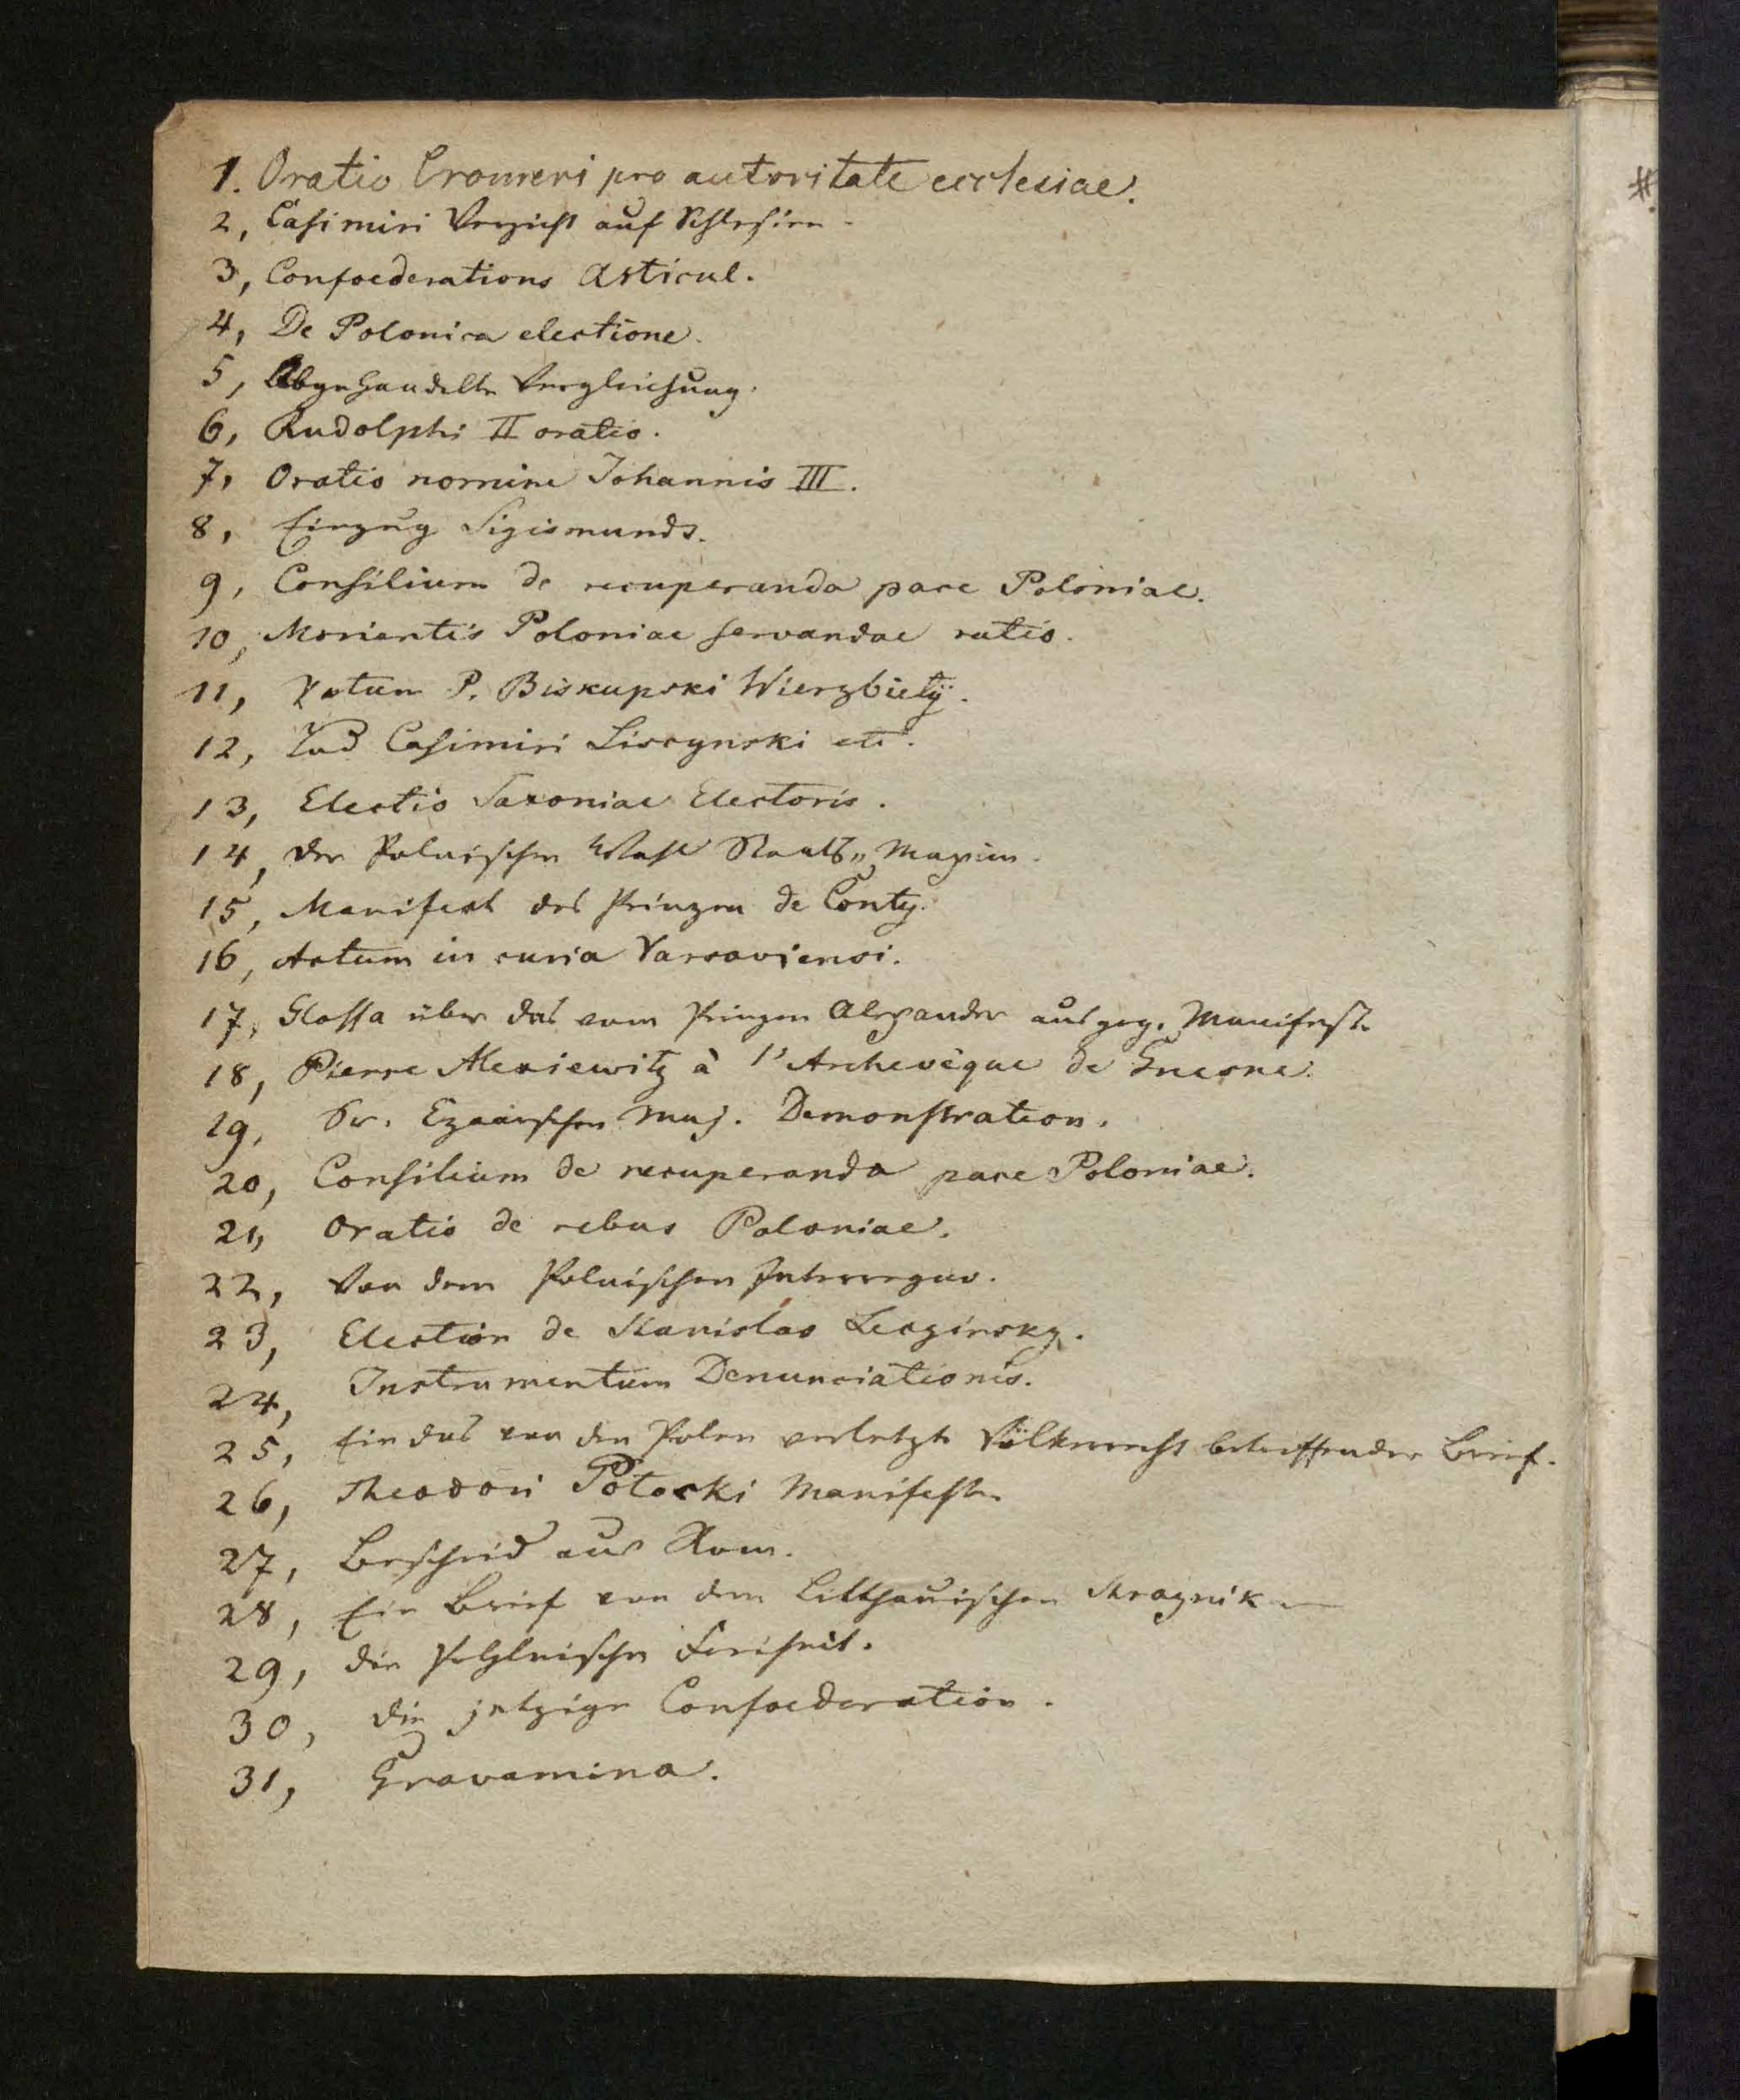 1. Oratio Cromeri pro autoritate ecclesiae.
2, Casimiri Verzicht auf Schlesien.
3, Confoederations Articul.
4, De Polonica electione.
5, Abgehandelte Vergleichung.
6, Rudolphi II oratio.
7, Oratio nomine Johannis III.
8, Einzug Sigismunds.
9, Consilium de recuperanda pace Poloniae.
10, Morientis Poloniae servandae ratio.
11, Votum P. Biskupski Wierzbiety.
12, Tod Casimiri Liscynski etc.
13, Electio Saxoniae Electoris.
14, Der Polnischen Wahl Staats„ Maxim.
15, Manifest des Prinzen de Conty.
16, Actum in curia Varsaviensi.
17, Glossa über das vom Prinzen Alexander ausgeg. Manifest.
18, Pierre Alexiewitz à l'Archevêque de Gnesne.
19, Sr. Czaarischen Maj. Demonstration.
20, Consilium de recuperanda pace Poloniae.
21, Oratio de rebus Poloniae.
22, Von dem Polnischen Interregno.
23, Election de Stanislas Leczinsky.
24, Instrumentum Denunciationis.
25, Ein das von den Polen verletzte Völkerrecht betreffender Brief.
26, Theodori Potocki Manifest.
27, Bescheid aus Rom.
28, Ein Brief von dem Litthauischen Straznik
29, Die Pohlnische Freiheit.
30, Die jetzige Confoederation.
31, Gravamina.
#.